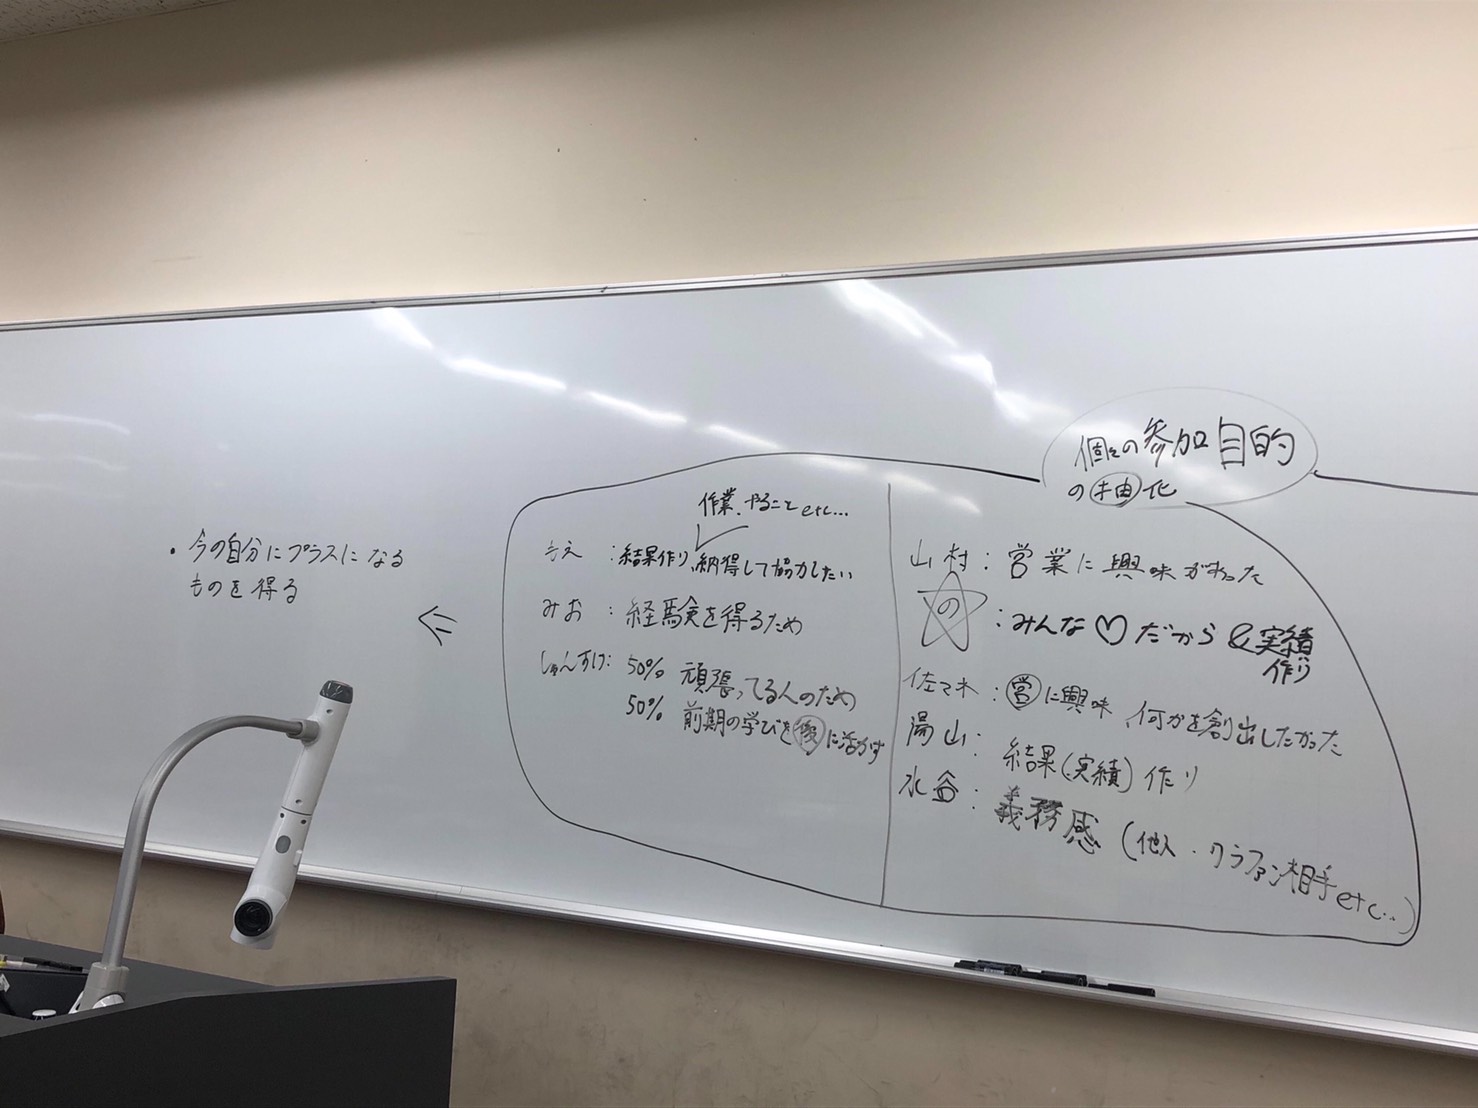 個々の参加目的
の抽化
山村：営業に興味がわった
の：みんな♡だから&実績
作り
佐々木：営に興味、何かを創出したかった
陽山：結果(実績)作り
水谷：義務感(他人・クラファン相手etc...)
作業、やることetc...
：結果作り、納得して協力したい
みお：経験を得るため
しゅんすけ：50% 頑張ってる人のため
50% 前期の学びを後に活かす
・今の自分にプラスになる
ものを得る